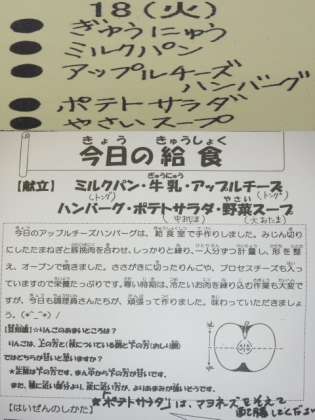 18(火)
ぎゅうにゅう
ミルクパン
アップルチーズ
ハンバーグ
ポテトサラダ
やさいスープ
きょう きゅうしょく
今日の給食
【献立】 ミルクパン・牛乳・アップルチーズ
(トング) (トング)
ハンバーグ・ポテトサラダ・野菜スープ
(中おたま) (大おたま)
今日のアップルチーズハンバーグは、給食室で手作りしました。みじん切り
にしたたまねぎと豚挽肉を合わせ、しっかりと練り、一人分ずつ計量し、形を整
え、オーブンで焼きました。ささがきに切ったりんごや、プロセスチーズも入っ
ていますので栄養たっぷりです。寒い時期は、冷たいお肉を練り込む作業も大変で
すが、今日も調理員さんたちが、頑張って作りました。味わっていただきましょ
う。(*^_^*)/
【豆知識】☆りんごのあまいところは?
りんごは、上の方と(枝についている側)と下の方(おしり側)
ではどちらが甘いと思いますか?
★正解は下の方です。まん中から下の方が甘いです。
また、種に近い部分より、皮に近い方が、よりあまみが強いそうです。
★「ポテトサラダ」は、マヨネーズをそえて
【はいぜんのしかた】